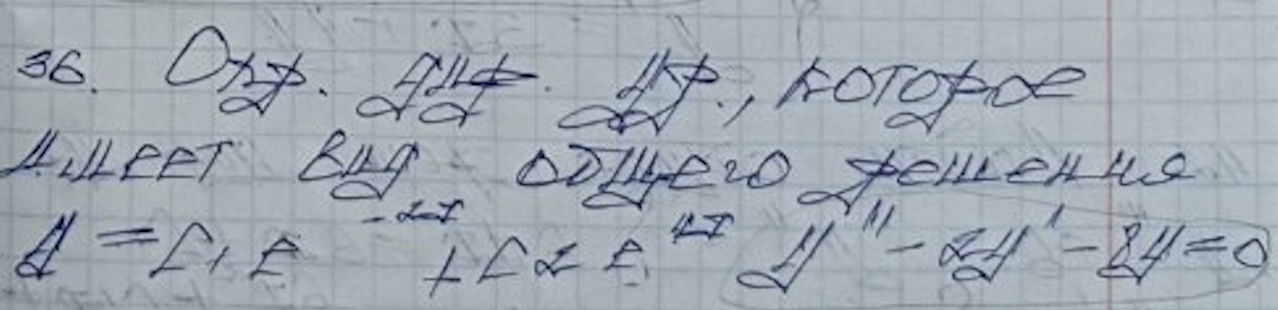 36. Опр. диф. ур., которое
имеет вид общего решения
y = C1 e^-2x + C2 e^4x y'' - 2y' - 8y = 0